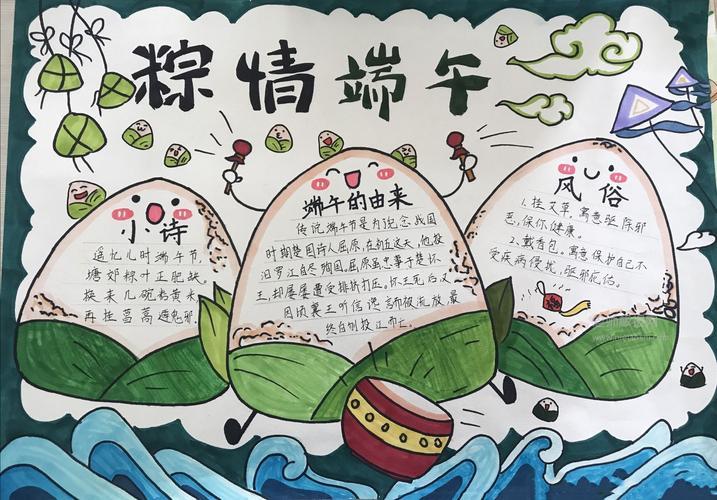 粽情端午
小诗
遥忆儿时端午节,
塘郊粽叶正肥缺。
换来几碗
再挂菖蒿避鬼邪。
端午的由来
传说端午节是为纪念战国
时期楚国诗人屈原,在初五这天,他投
汨罗江自尽殉国。屈原虽忠事于楚怀
王,却屡屡遭受排挤打压。怀王死后又
因顷襄王听信谗言而被流放,最
终自刎投江而亡。
风俗
1.挂艾草,寓意驱除邪
恶,保你健康。
2.戴香包,寓意保护自己不
受疾病侵扰,驱邪庇佑。